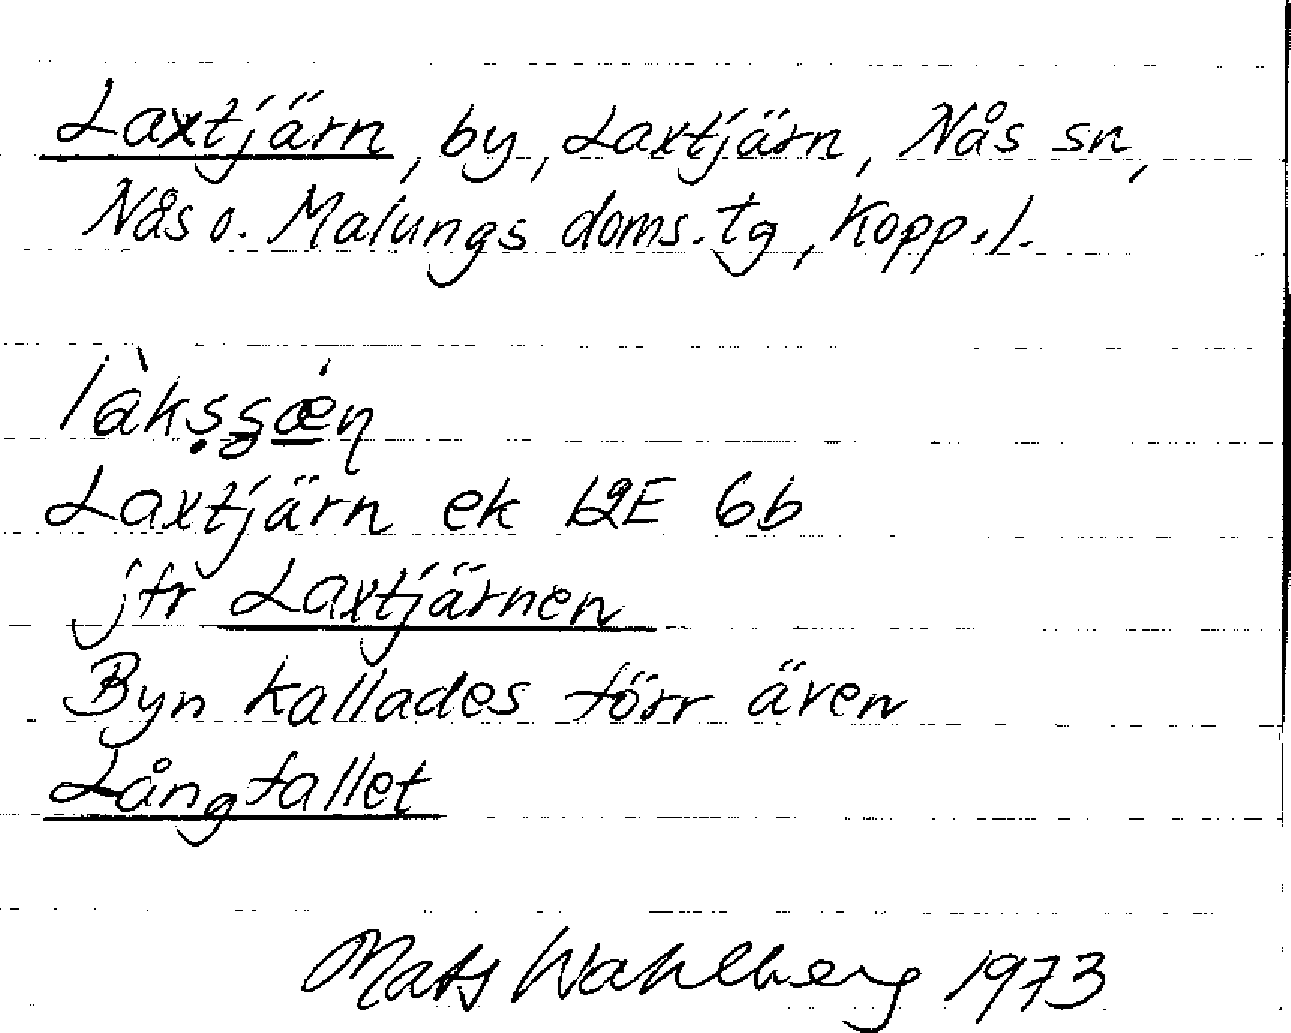 Laxtjärn, by, Laxtjärn, Nås sn,
Nås o. Malungs doms.tg, Kopp.l.
Laxtjärn ek 12E 6b
jfr Laxtjärnen
Byn kallades förr även
Långfallet
Mats Wahlberg 1973